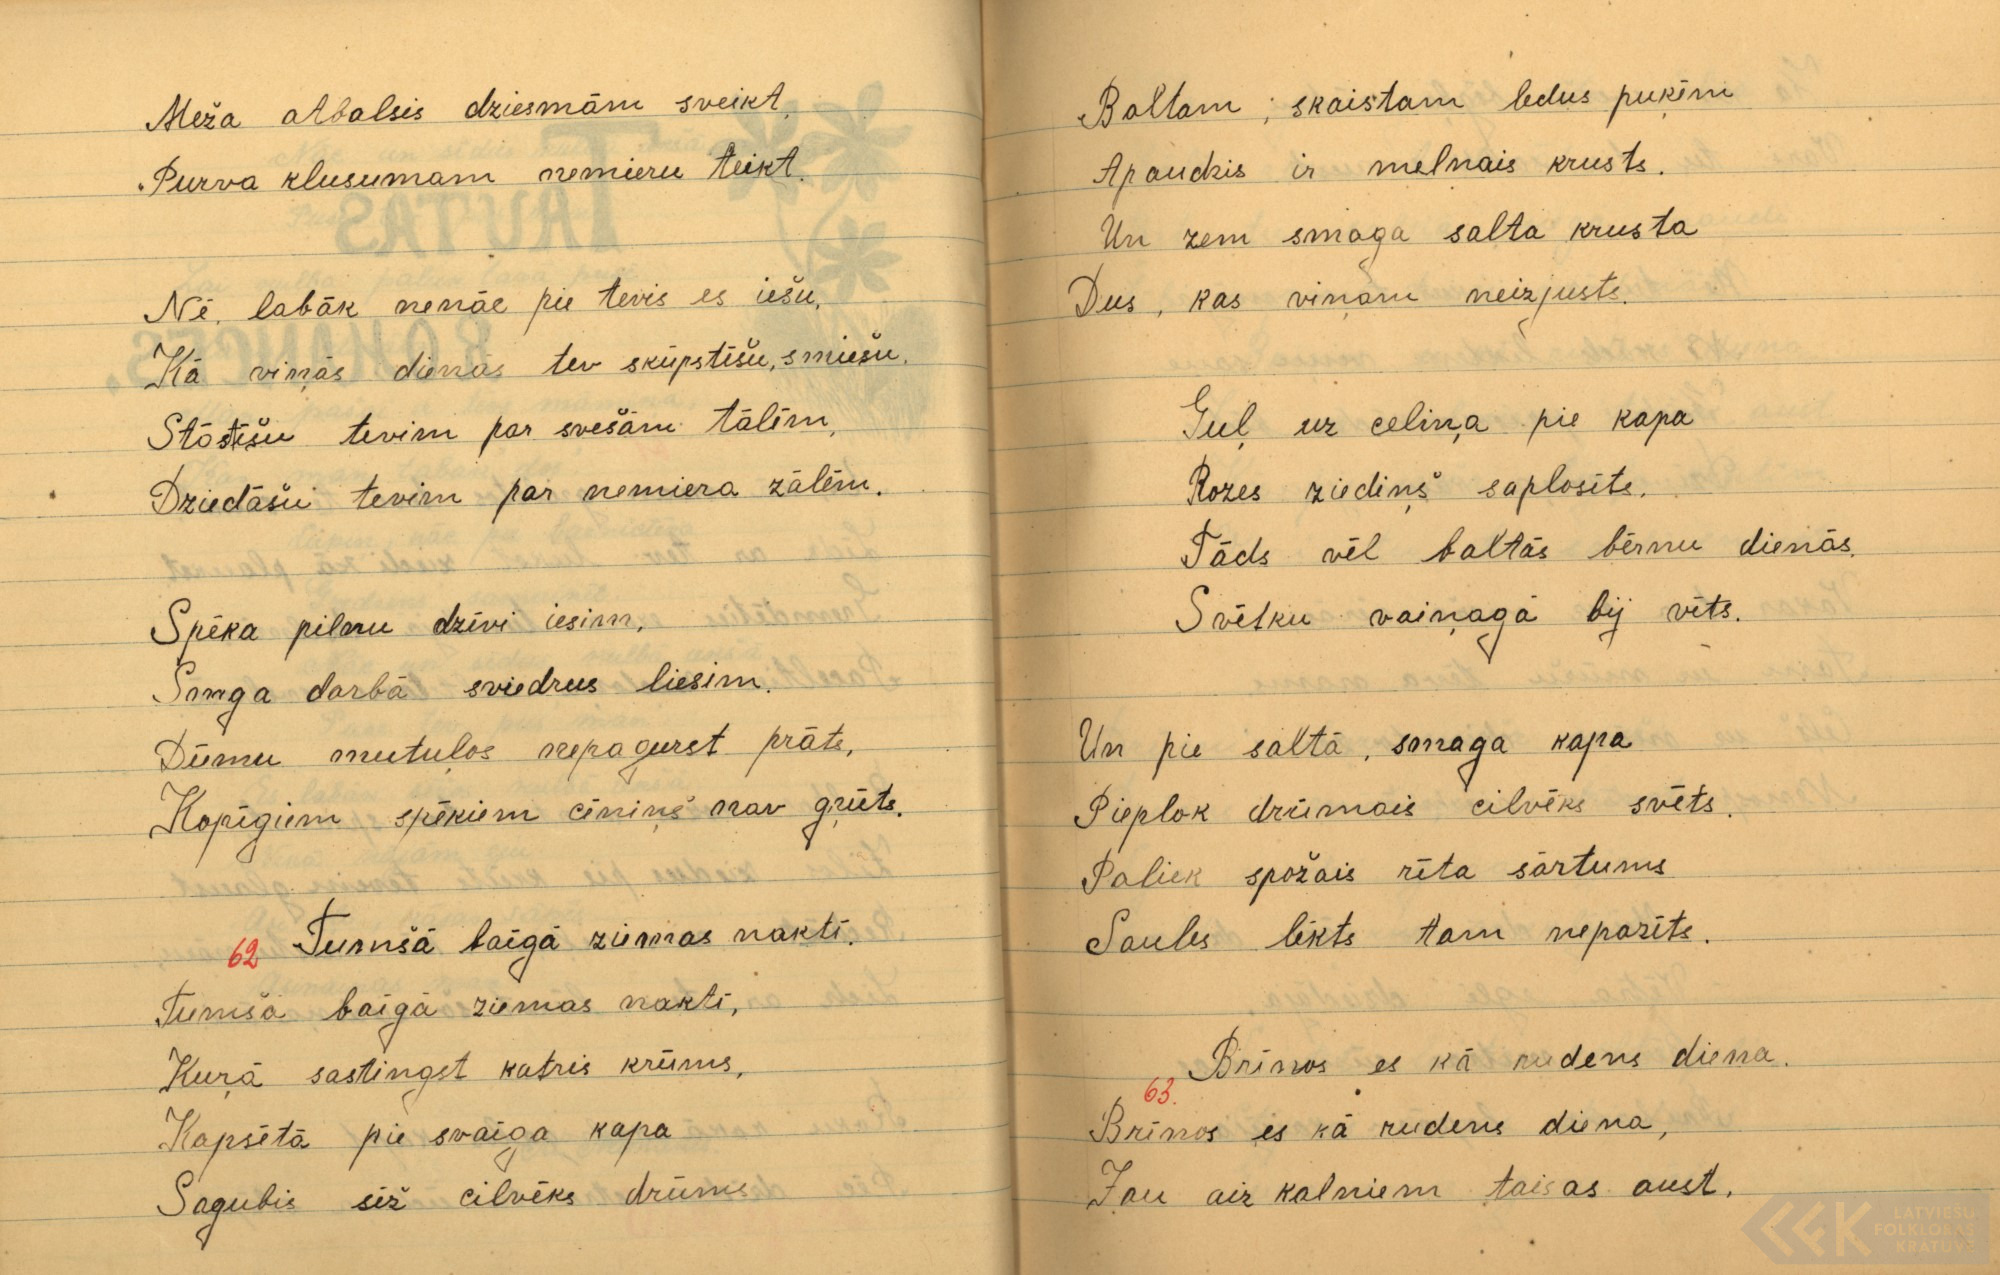 Meža atbalsis dziesmām sveikt,
Purva klusumam nemieru teikt.
Nē, labāk nenāc pie tevis es iešu,
Kā viņās dienās tev skūpstīšu, smiešu.
Stāstīšu tevim par svešām tālēm,
Dziedāšu tevim par nemiera zālēm.
Spēka pilnu dzīvi iesim,
Smaga darbā sviedrus liesim.
Dūmu mutuļos nepagurst prāts,
Kopīgiem spēkiem cēniņš nav grūts.
62 Tumšā baigā ziemas naktī.
Tumšā baigā ziemas naktī,
Kuŗā sastingst katris krūms,
Kapsētā pie svaiga kapa
Sagubis sēž cilvēks drūms
Baltam, skaistam ledus puķēm
Apaudzis ir melnais krusts.
Un zem smaga salta krusta
Dus, kas viņam neizjusts.
Guļ uz celiņa pie kapa
Rozes ziediņš saplosīts.
Tāds vēl baltās bērnu dienās.
Svētku vaiņagā bij vīts.
Un pie saltā, smaga kapa
Pieplok drūmais cilvēks svēts.
Paliek spožais rīta sārtums
Saules lēkts tam nepazīts.
63. Brīnos es kā rudens diena.
Brīnos es kā rudens diena,
Jau aiz kalniem taisas aust.
LATVIEŠU
FOLKLORAS
KRĀTUVE